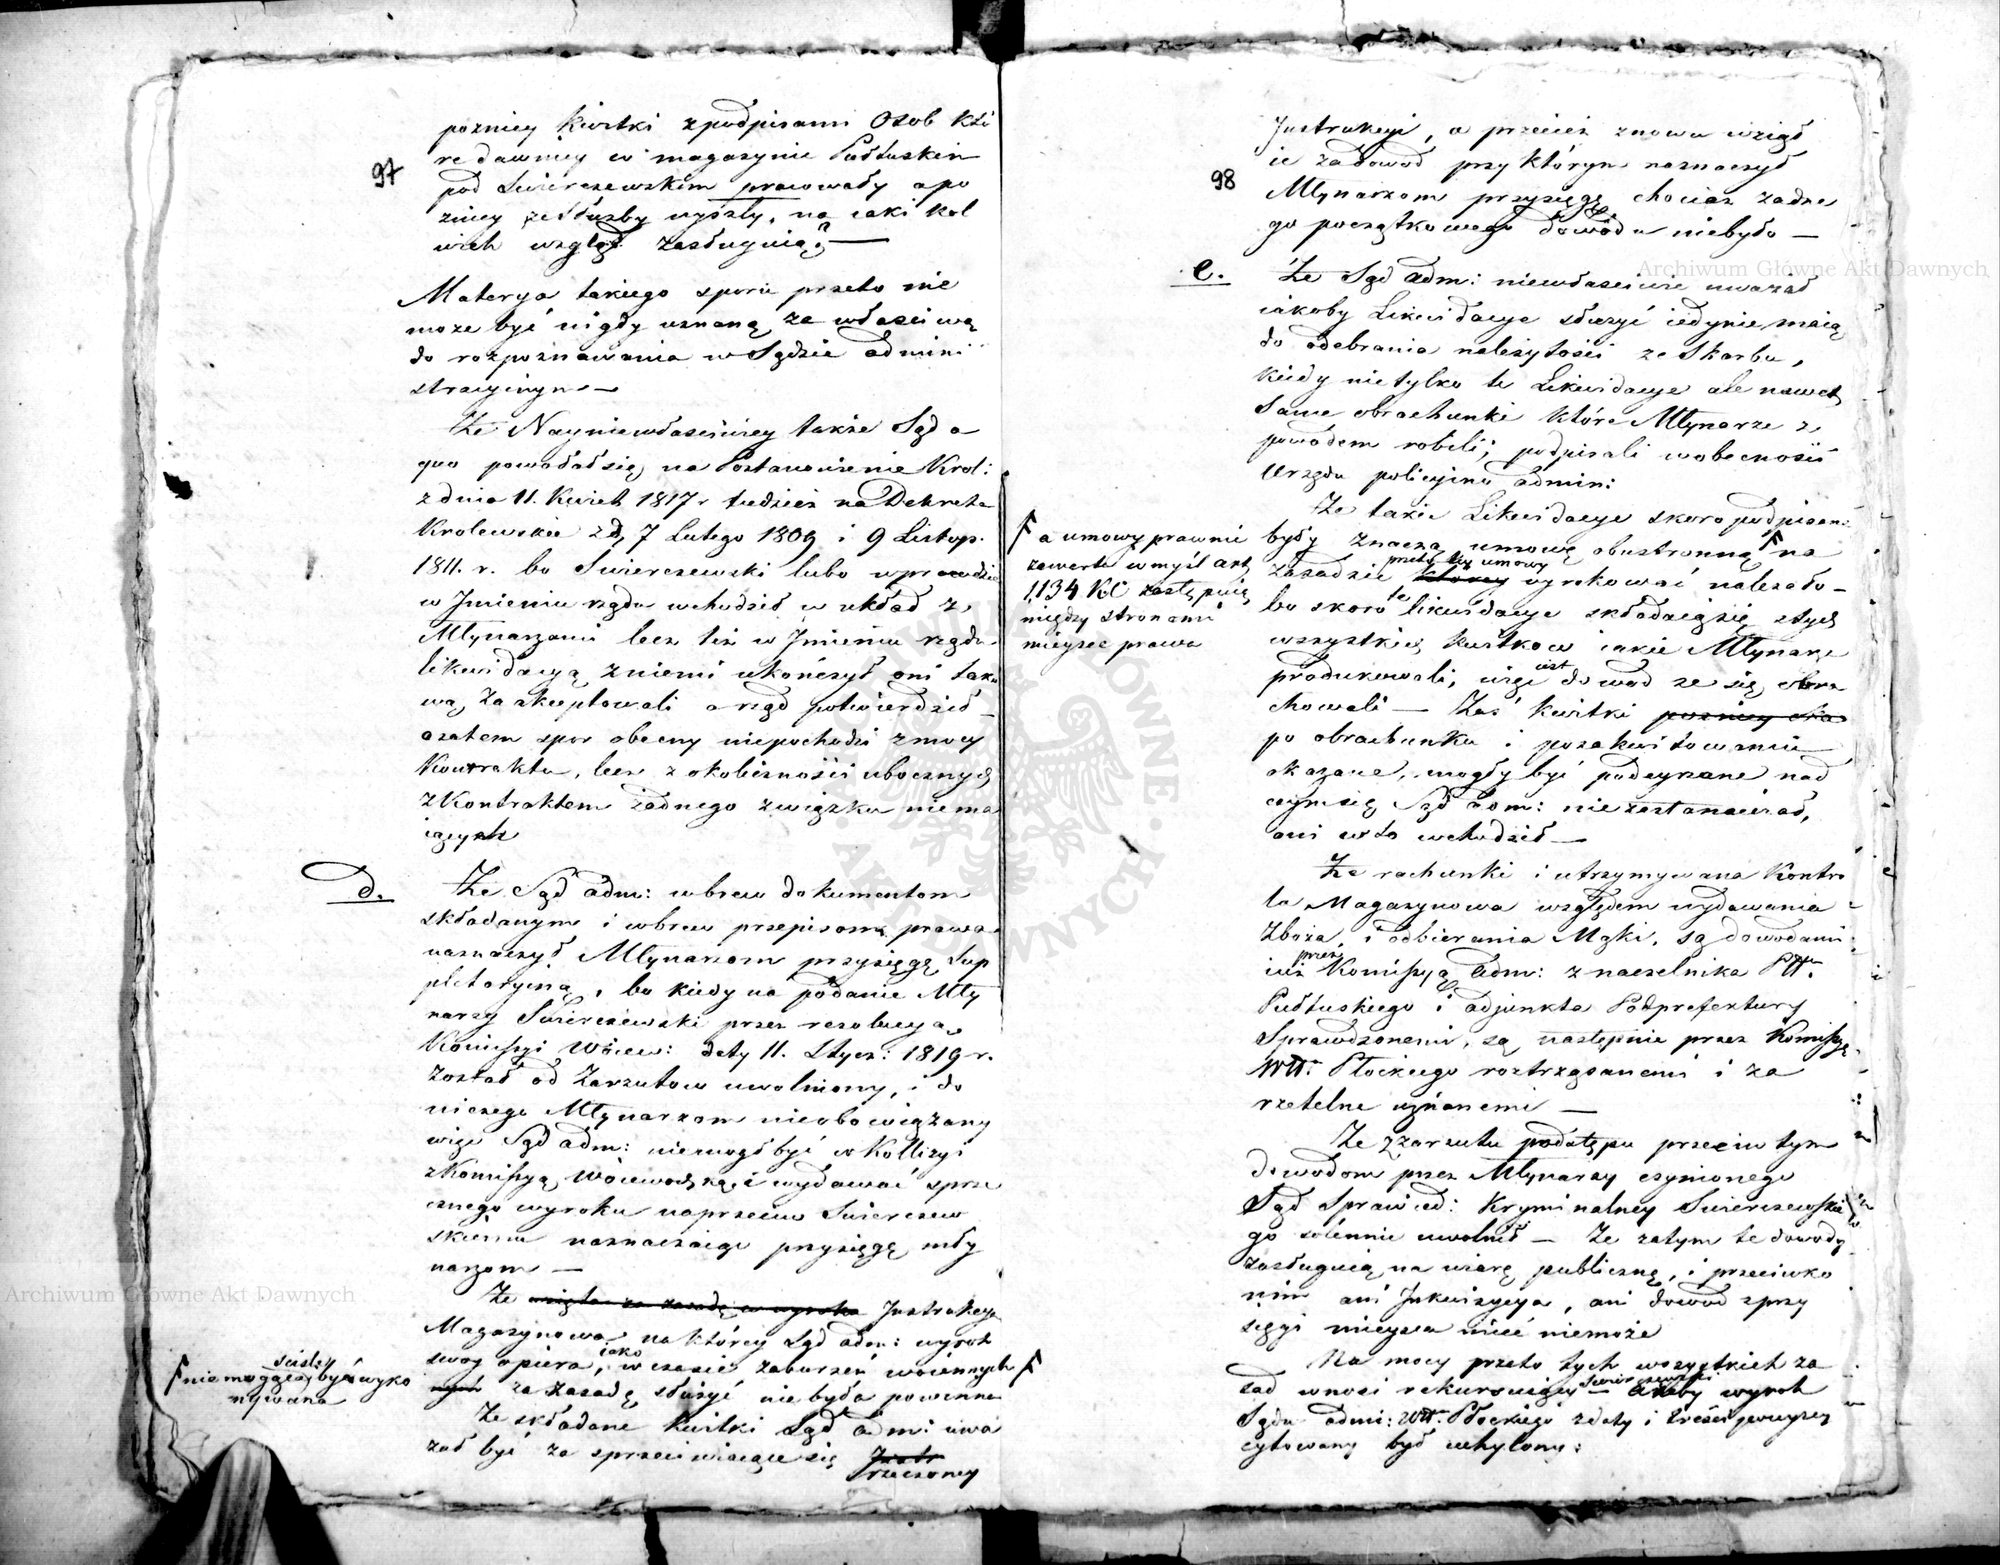 97
pozniey kwitki z podpisami Osob któ
re dawniey w magazynie Pułtuskim
pod Swierczewskim pracowały a po
zniey ze służby wyszły, na iaki kol
wiek wzgląd zasługuią? —
Materya takiego sporu przeto nie
może być nigdy uznaną za właściwą
do rozpoznawania w Sądzie admini
stracyinym —
Że Nayniewłaściwiey także Sąd a
quo powołał się na Postanowienie Krol:
z dnia 11. Kwiet 1817 r tudzież na Dekreta
Krolewskie z d, 7 Lutego 1809 i 9 Listop.
1811. r. bo Swierczewski lubo wprawdzie
w Jmieniu rządu wchodził w układ z
Młynarzami lecz też w Jmieniu rządu
likwidacyą z niemi ukończył oni tako
wą zaakceptowali a rząd potwierdził —
a zatem spor obecny niepochodzi z mocy
Kontraktu, lecz z okoliczności ubocznych
z Kontraktem żadnego związku niema
iących
d. Że Sąd adm: wbrew dokumentom
składanym i wbrew przepisom prawa
naznaczył Młynarzom przysięgę Sup
pletoryiną, bo kiedy na podanie Mły
narzy Swierczewski przez rezolucyą
Kommissyi Woiew: daty 11. Stycz: 1819 r.
został od Zarzutow uwolniony, i do
niczego Młynarzom nieobowiązany
więc Sąd adm: niemogł być w Kollizyi
z Kommissyą Woiewodzką i wydawać sprze
cznego wyroku naprzeciw Swierczew
skiemu naznaczaiąc przysięgę mły
narzom —
Że wzięta za zasadę w wyroku Jnstrukcya
Magazynowa na którey Sąd adm: wyrok
swoy opiera, iako w czasie zaburzeń woiennych
za zasadę służyć nie była powinna
ściśley
nie mogącey być wyko
nywana
Że składane kwitki Sąd adm: uwa
żał być za sprzeciwiaiące się Jnstr
rzeczoney
98
Jnstrukcyi, a przecież znowu wziął
ie za dowod przy którym naznaczył
Młynarzom przysięgę chociaż żadne
go początkowego dowodu niebyło —
e. Że Sąd adm: niewłaściwie uważał
iakoby Likwidacye służyć iedynie maią
do odebrania należytości ze Skarbu,
kiedy nietylko te Likwidacye ale nawet
same obrachunki które Młynarze z
powodem robili, podpisali w obecności
Urzędu policyino admin:
Że takie Likwidacye skoro podpisane
były znaczą umowę obustronną na
zasadzie którey przeto tey umowy wyrokować należało —
a umowy prawnie
zawarte w myśl art
1134 KC zastępuią
między stronami
mieysce prawa
bo skoro te likwidacye składaią się z tych
wszystkich kwitkow iakie Młynarze
produkowali, więc iest dowod że się obra
chowali — Zaś kwitki pozniey oka
po obrachunku i pozakwitowaniu
okazane, mogły być podeyrzane nad
czym się Sąd adm: nie zastanawiał,
ani w to wchodził —
Że rachunki i utrzymywana Kontro
la Magazynowa względem wydawania
Zboża, i odbierania Mąki, są dowodami
iuż przez Komissyą adm: z naczelnika Ptu
Pułtuskiego i adjunkta Podprefektury
Sprawdzonemi, są następnie przez Komissyę
Wtt: Płockiego roztrząsanemi i za
rzetelne uznanemi —
Że z zarzutu podstępu przeciw tym
dowodom przez Młynarzy czynionego
Sąd Sprawied: Kryminalney Swierczewskie
go solennie uwolnił — Że zatym te dowody
zasługuią na wiarę publiczną, i przeciwko
nim ani Jnkwizycya, ani dowod z przy
sięgi mieysca mieć niemoże
Na mocy przeto tych wszystkich za
sad wnosi rekuruiący Swierczewski — Ażeby wyrok
Sądu admi: Wtt. Płockiego z daty i treści powyżey
cytowany był uchylony:
Archiwum Główne Akt Dawnych
Archiwum Główne Akt Dawnych